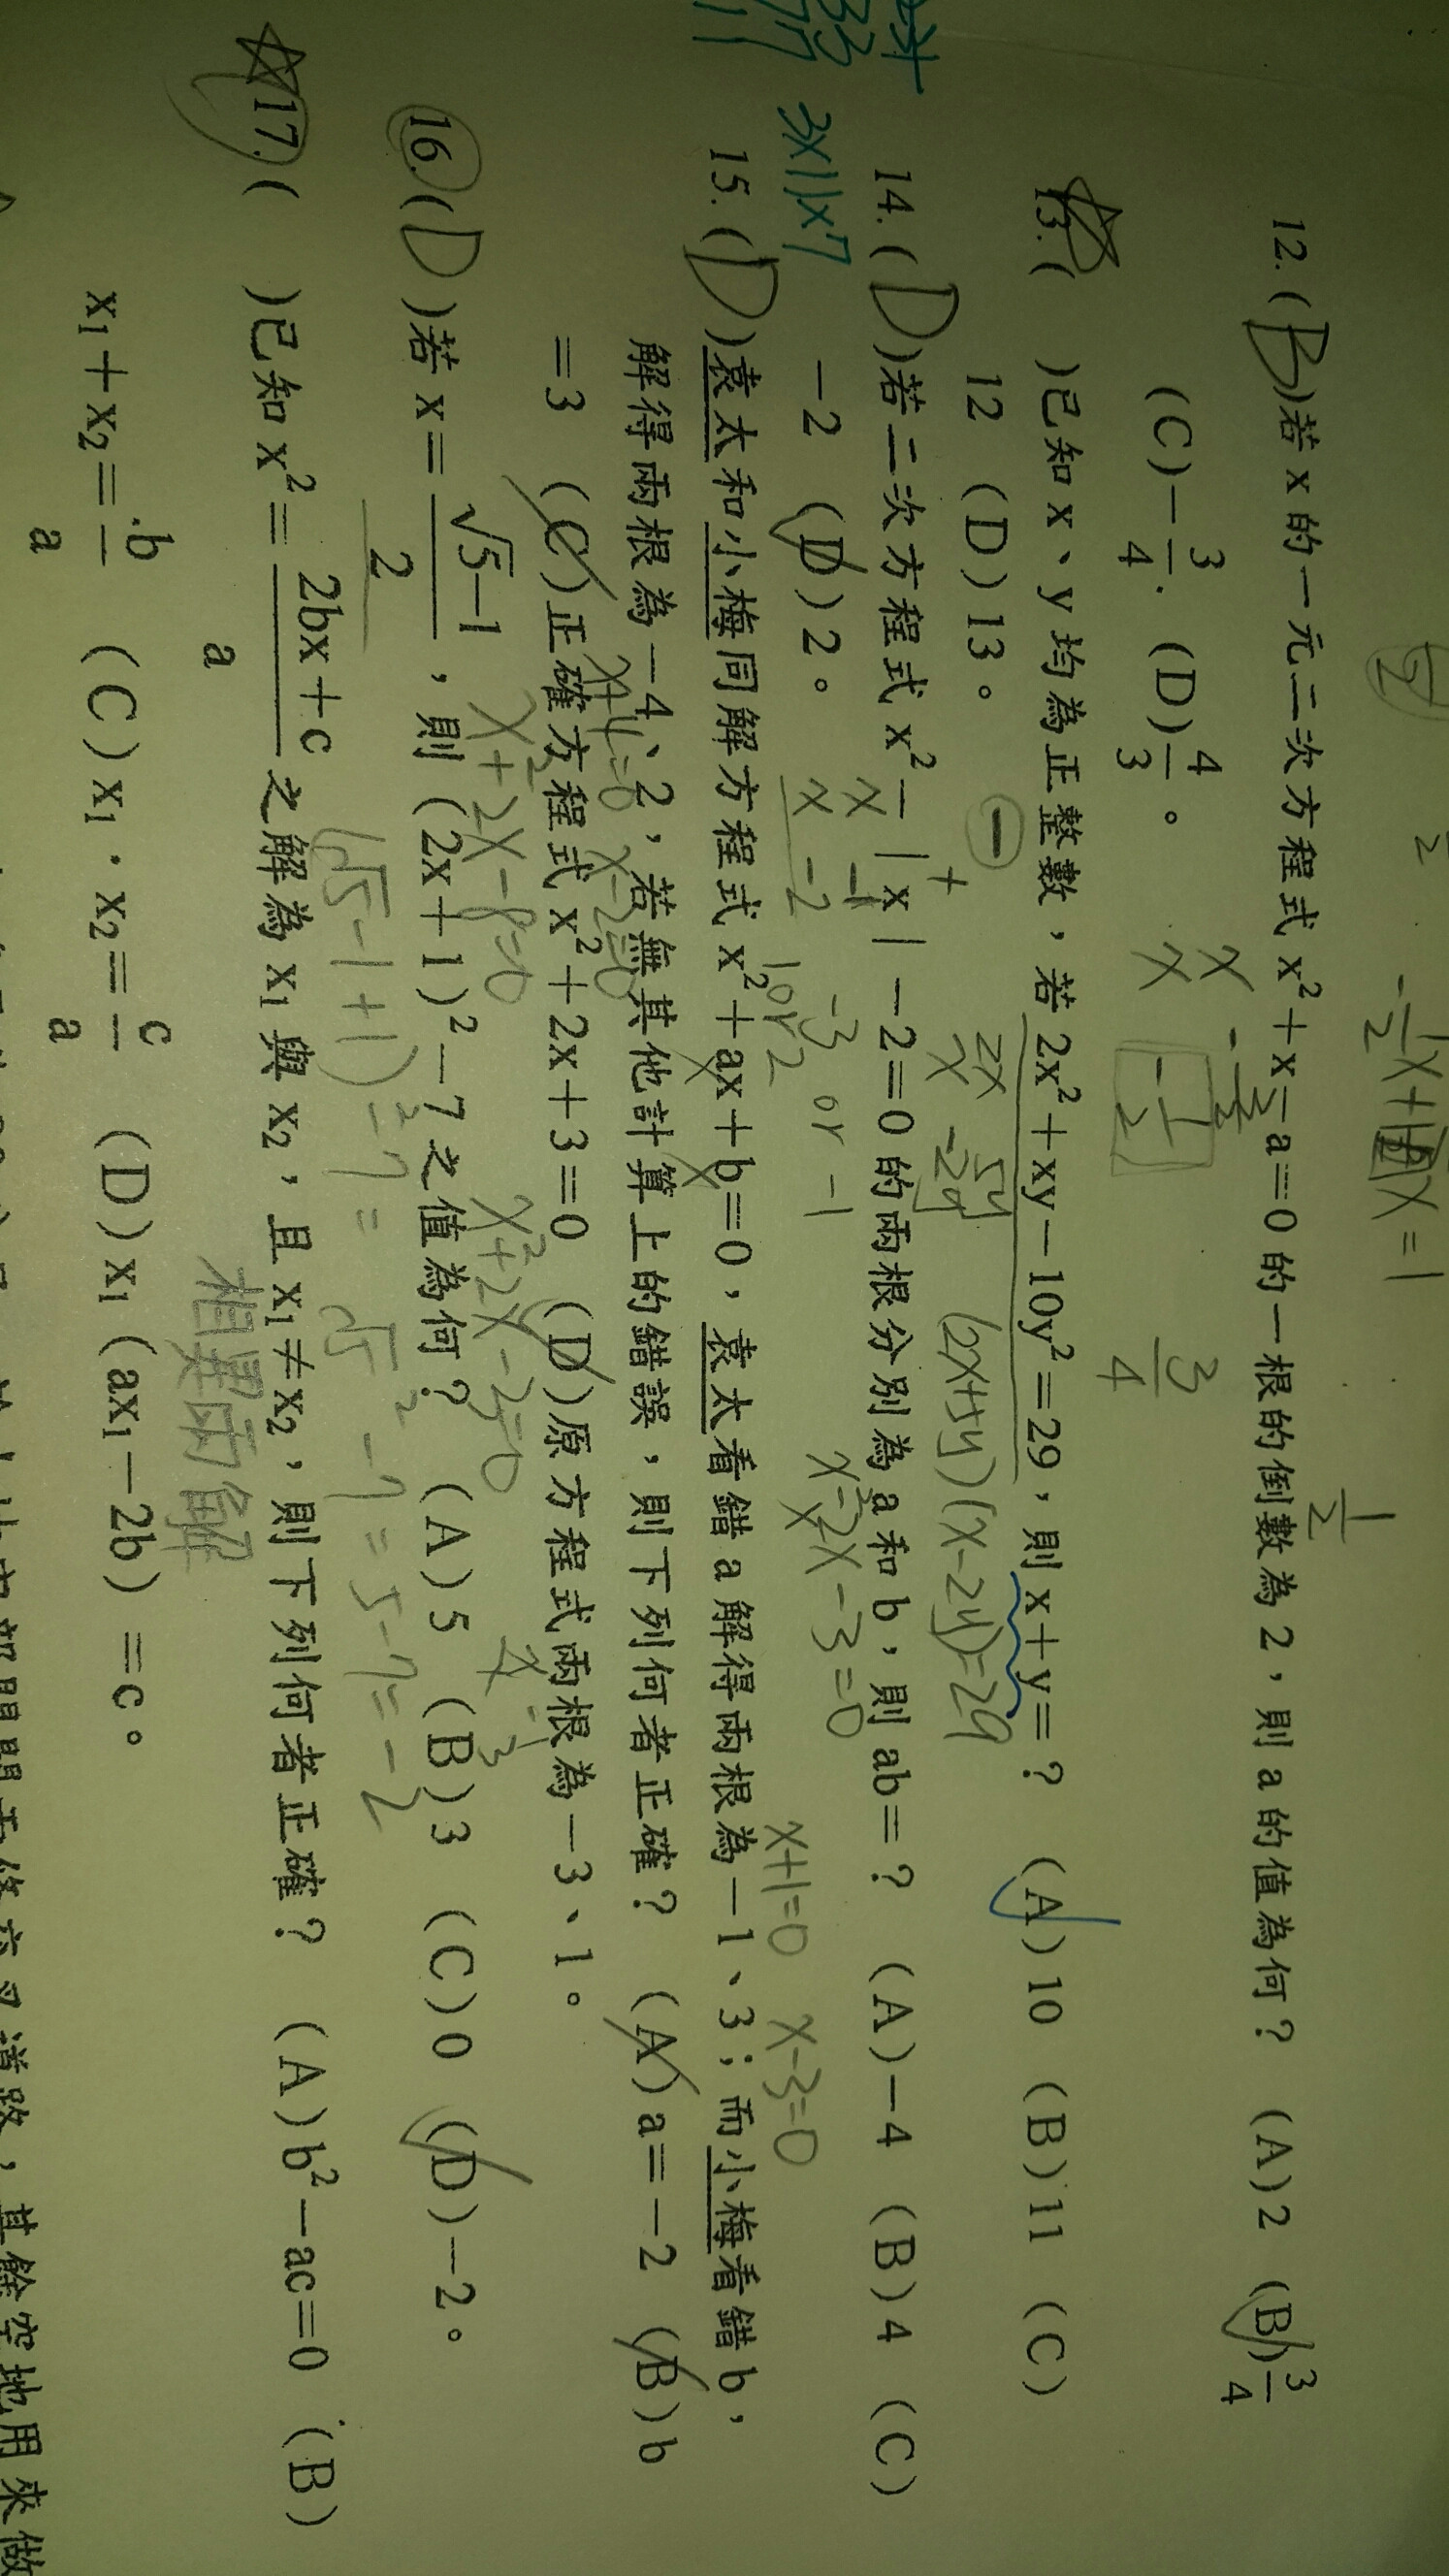 12.(B)若 x 的一元二次方程式 x²+x-a=0 的一根的倒數為 2，則 a 的值為何？ (A)2 (B)3/4
(C)-3/4 (D)4/3。
13.( )已知 x、y 均為正整數，若 2x²+xy-10y²=29，則 x+y=？ (A)10 (B)11 (C)
12 (D)13。
(2x+5y)(x-2y)=29
14.(D)若二次方程式 x²-|x|-2=0 的兩根分別為 a 和 b，則 ab=？ (A)-4 (B)4 (C)
-2 (D)2。
3x11x7
x²-2x-3=0
x+1=0 x-3=0
15.(D)袁太和小梅同解方程式 x²+ax+b=0，袁太看錯 a 解得兩根為-1、3；而小梅看錯 b，
解得兩根為-4、2，若無其他計算上的錯誤，則下列何者正確？ (A)a=-2 (B)b
x+4=0 x-2=0
=3 (C)正確方程式 x²+2x+3=0 (D)原方程式兩根為-3、1。
x²+2x-8=0
16.(D)若 x=(√5-1)/2，則 (2x+1)²-7 之值為何？ (A)5 (B)3 (C)0 (D)-2。
(√5-1+1)²-7= √5²-7=5-7=-2
17.( )已知 x²=(2bx+c)/a 之解為 x₁ 與 x₂，且 x₁≠x₂，則下列何者正確？ (A)b²-ac=0 (B)
相異兩解
x₁+x₂=b/a (C)x₁·x₂=c/a (D)x₁(ax₁-2b)=c。